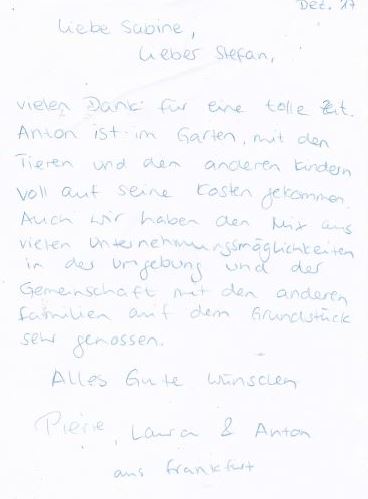 Dez. 17
Liebe Sabine,
Lieber Stefan,
vielen Dank für eine tolle Zeit.
Anton ist im Garten, mit den
Tieren und den anderen Kindern
voll auf seine Kosten gekommen.
Auch wir haben den Mix aus
vielen Unternehmungsmöglichkeiten
in der Umgebung und der
Gemeinschaft mit den anderen
Familien auf dem Grundstück
sehr genossen.
Alles Gute wünschen
Pierre, Laura & Anton
aus Frankfurt